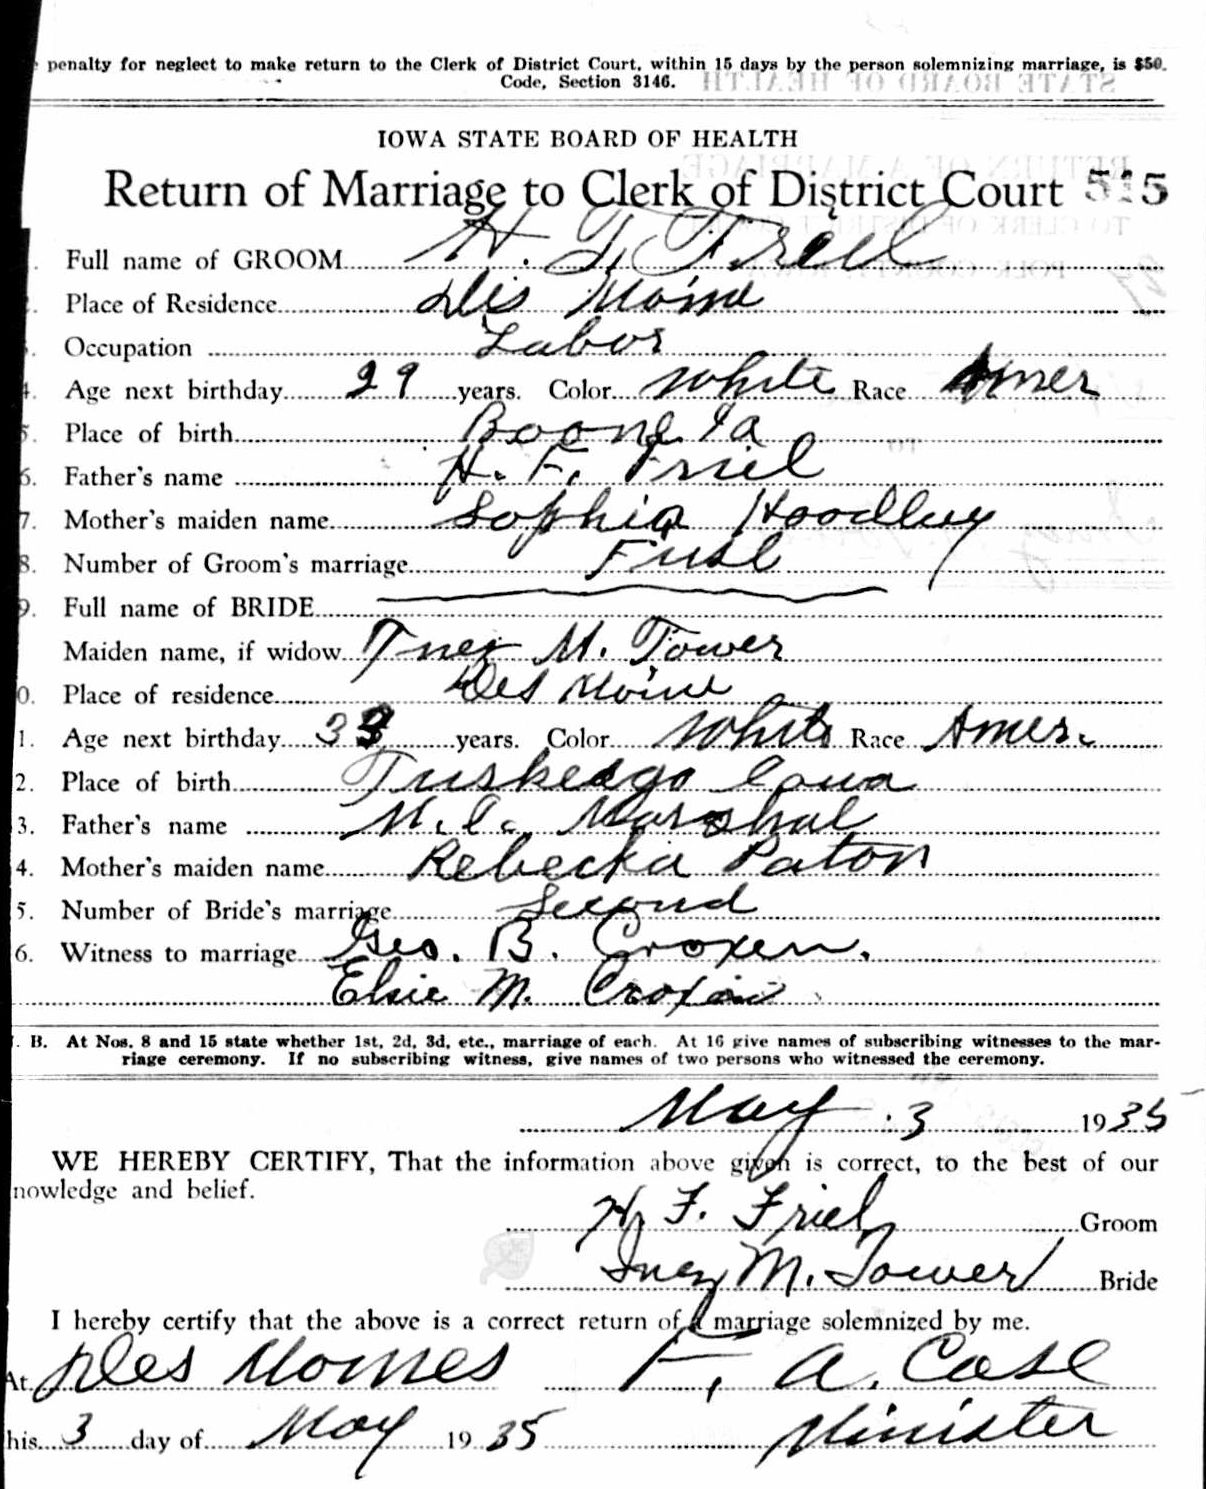 penalty for neglect to make return to the Clerk of District Court, within 15 days by the person solemnizing marriage, is $50.
Code, Section 3146.
IOWA STATE BOARD OF HEALTH
Return of Marriage to Clerk of District Court 515
Full name of GROOM H. F. Friel
Place of Residence Des Moine
Occupation Labor
Age next birthday 29 years. Color White Race Amer
5. Place of birth Boone Ia
6. Father's name H. F. Friel
7. Mother's maiden name Sophia
8. Number of Groom's marriage First
9. Full name of BRIDE
Maiden name, if widow Inez M. Tower
0. Place of residence Des Moine
1. Age next birthday 33 years. Color White Race Amer.
2. Place of birth Tuskeego Iowa
3. Father's name M. C. Marshal
4. Mother's maiden name Rebecka Paton
5. Number of Bride's marriage Second
6. Witness to marriage Geo. B. Croxen.
Elsie M. Croxen
. B. At Nos. 8 and 15 state whether 1st, 2d, 3d, etc., marriage of each. At 16 give names of subscribing witnesses to the mar-
riage ceremony. If no subscribing witness, give names of two persons who witnessed the ceremony.
May 3 1935
WE HEREBY CERTIFY, That the information above given is correct, to the best of our
nowledge and belief.
H. F. Friel Groom
Inez M. Tower Bride
I hereby certify that the above is a correct return of a marriage solemnized by me.
At Des Moines F. A. Case
his 3 day of May 1935 Minister